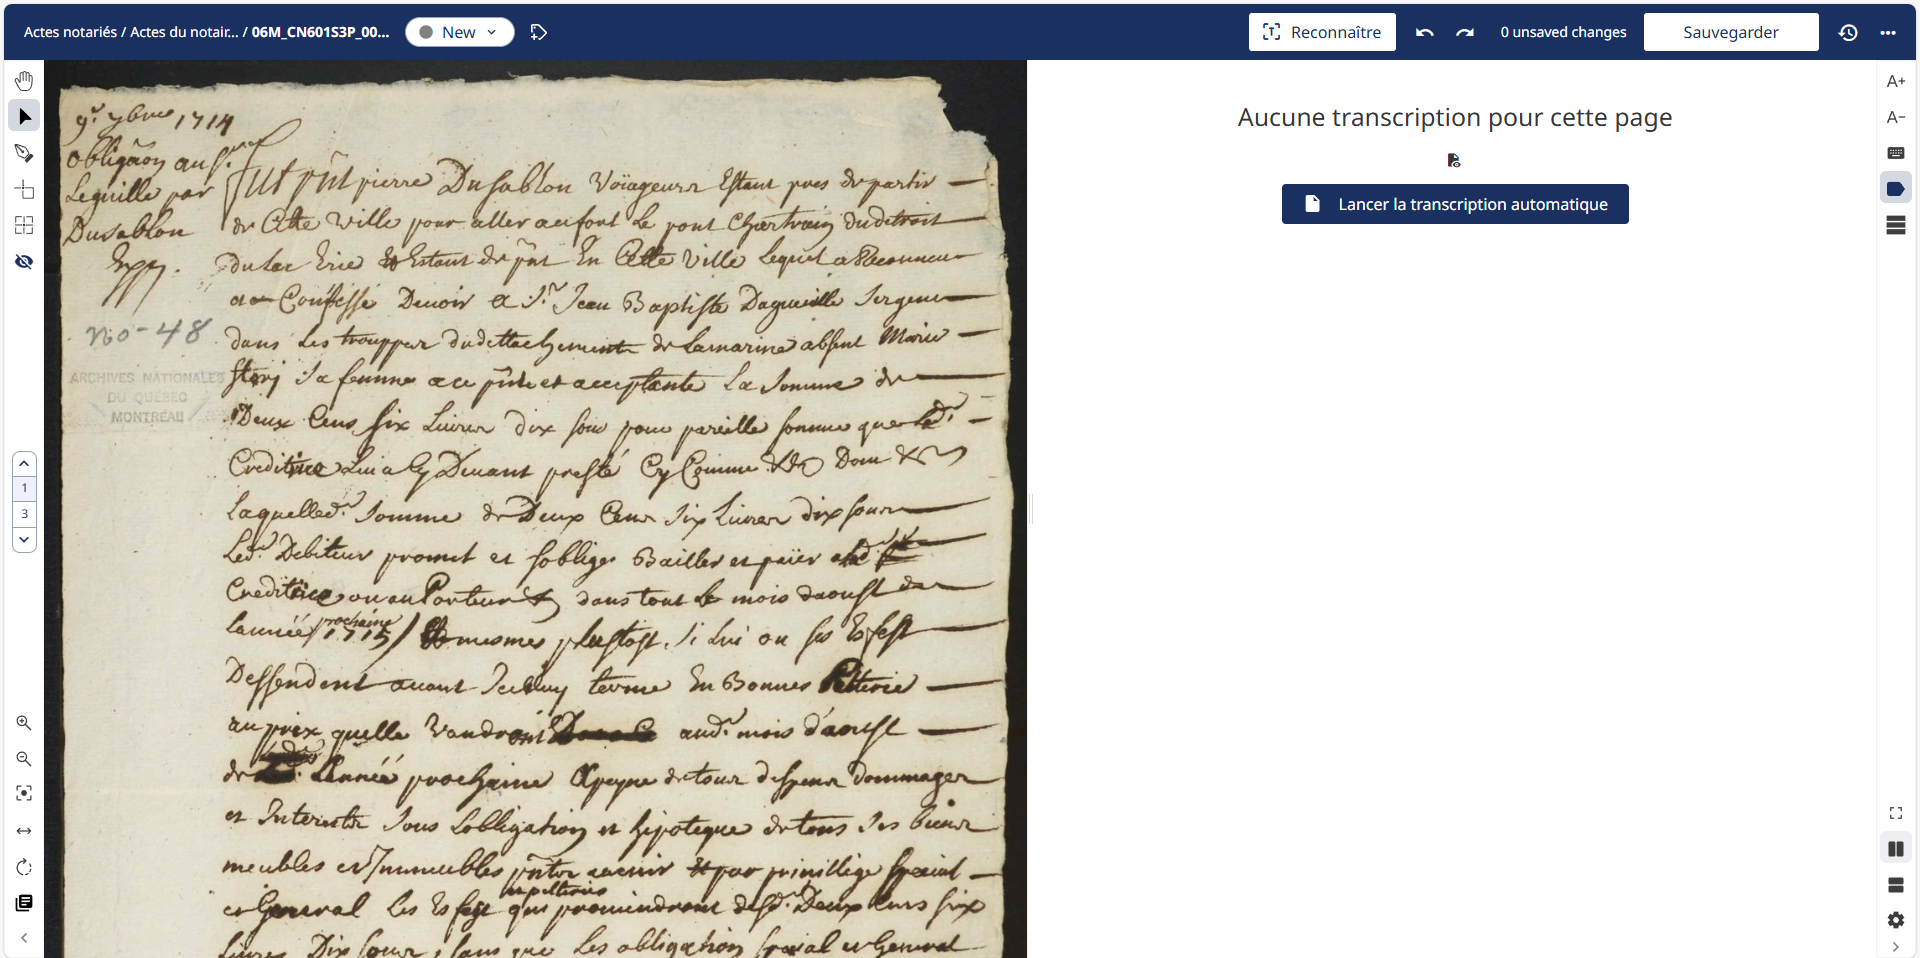 Actes notariés / Actes du notair... / 06M_CN601S3P_00...
New
Reconnaître
0 unsaved changes
Sauvegarder
Aucune transcription pour cette page
Lancer la transcription automatique
A+
A-
1
3
9.e 9bre 1714
obligãon au Sr
Leguille par
Dusablon
Expp.
No-48
ARCHIVES NATIONALES
DU QUÉBEC
MONTRÉAL
fut pñt pierre Dusablon Voÿageurs Estant pres de partir
de Cette Ville pour aller au fort Le pont Chartrain du detroit
du Lac Erie Estant de pñt En Cette Ville Lequel a Reconneu
et Confessé Devoir a Sr. Jean Baptiste Dagueille Sergent
dans Les trouppes du dettachement de Lamarine absent Marie
sa femme a ce pñte et acceptante La Somme de
Deux Cens six Livres dix sous pour pareille somme que
Creditrice Lui a Cy Devant presté Cy Comme Dont
Laquelle d. Somme de Deux Cens Six Livres dix sous
Led. Debiteur promet et soblige Bailler et païer
Creditrice ou au Porteur dans tout Le mois daoust de
Lannée prochaine 1715 mesmes plustost, Si Lui ou ses
Dessendent avant Icelluy terme En Bonnes Pelterie
au prix quelle Vaudront aud. mois d'aoust
de Lannée prochaine A peyne de tous despens dommages
et Interests Sous Lobligation et hipoteque de tous Ses biens
meubles et Immeubles pñts avenir par privillege special
et General Les que proviendront desd. Deux Cens six
en pelteries
Livres Dix Sous, sans que Les obligation special et General